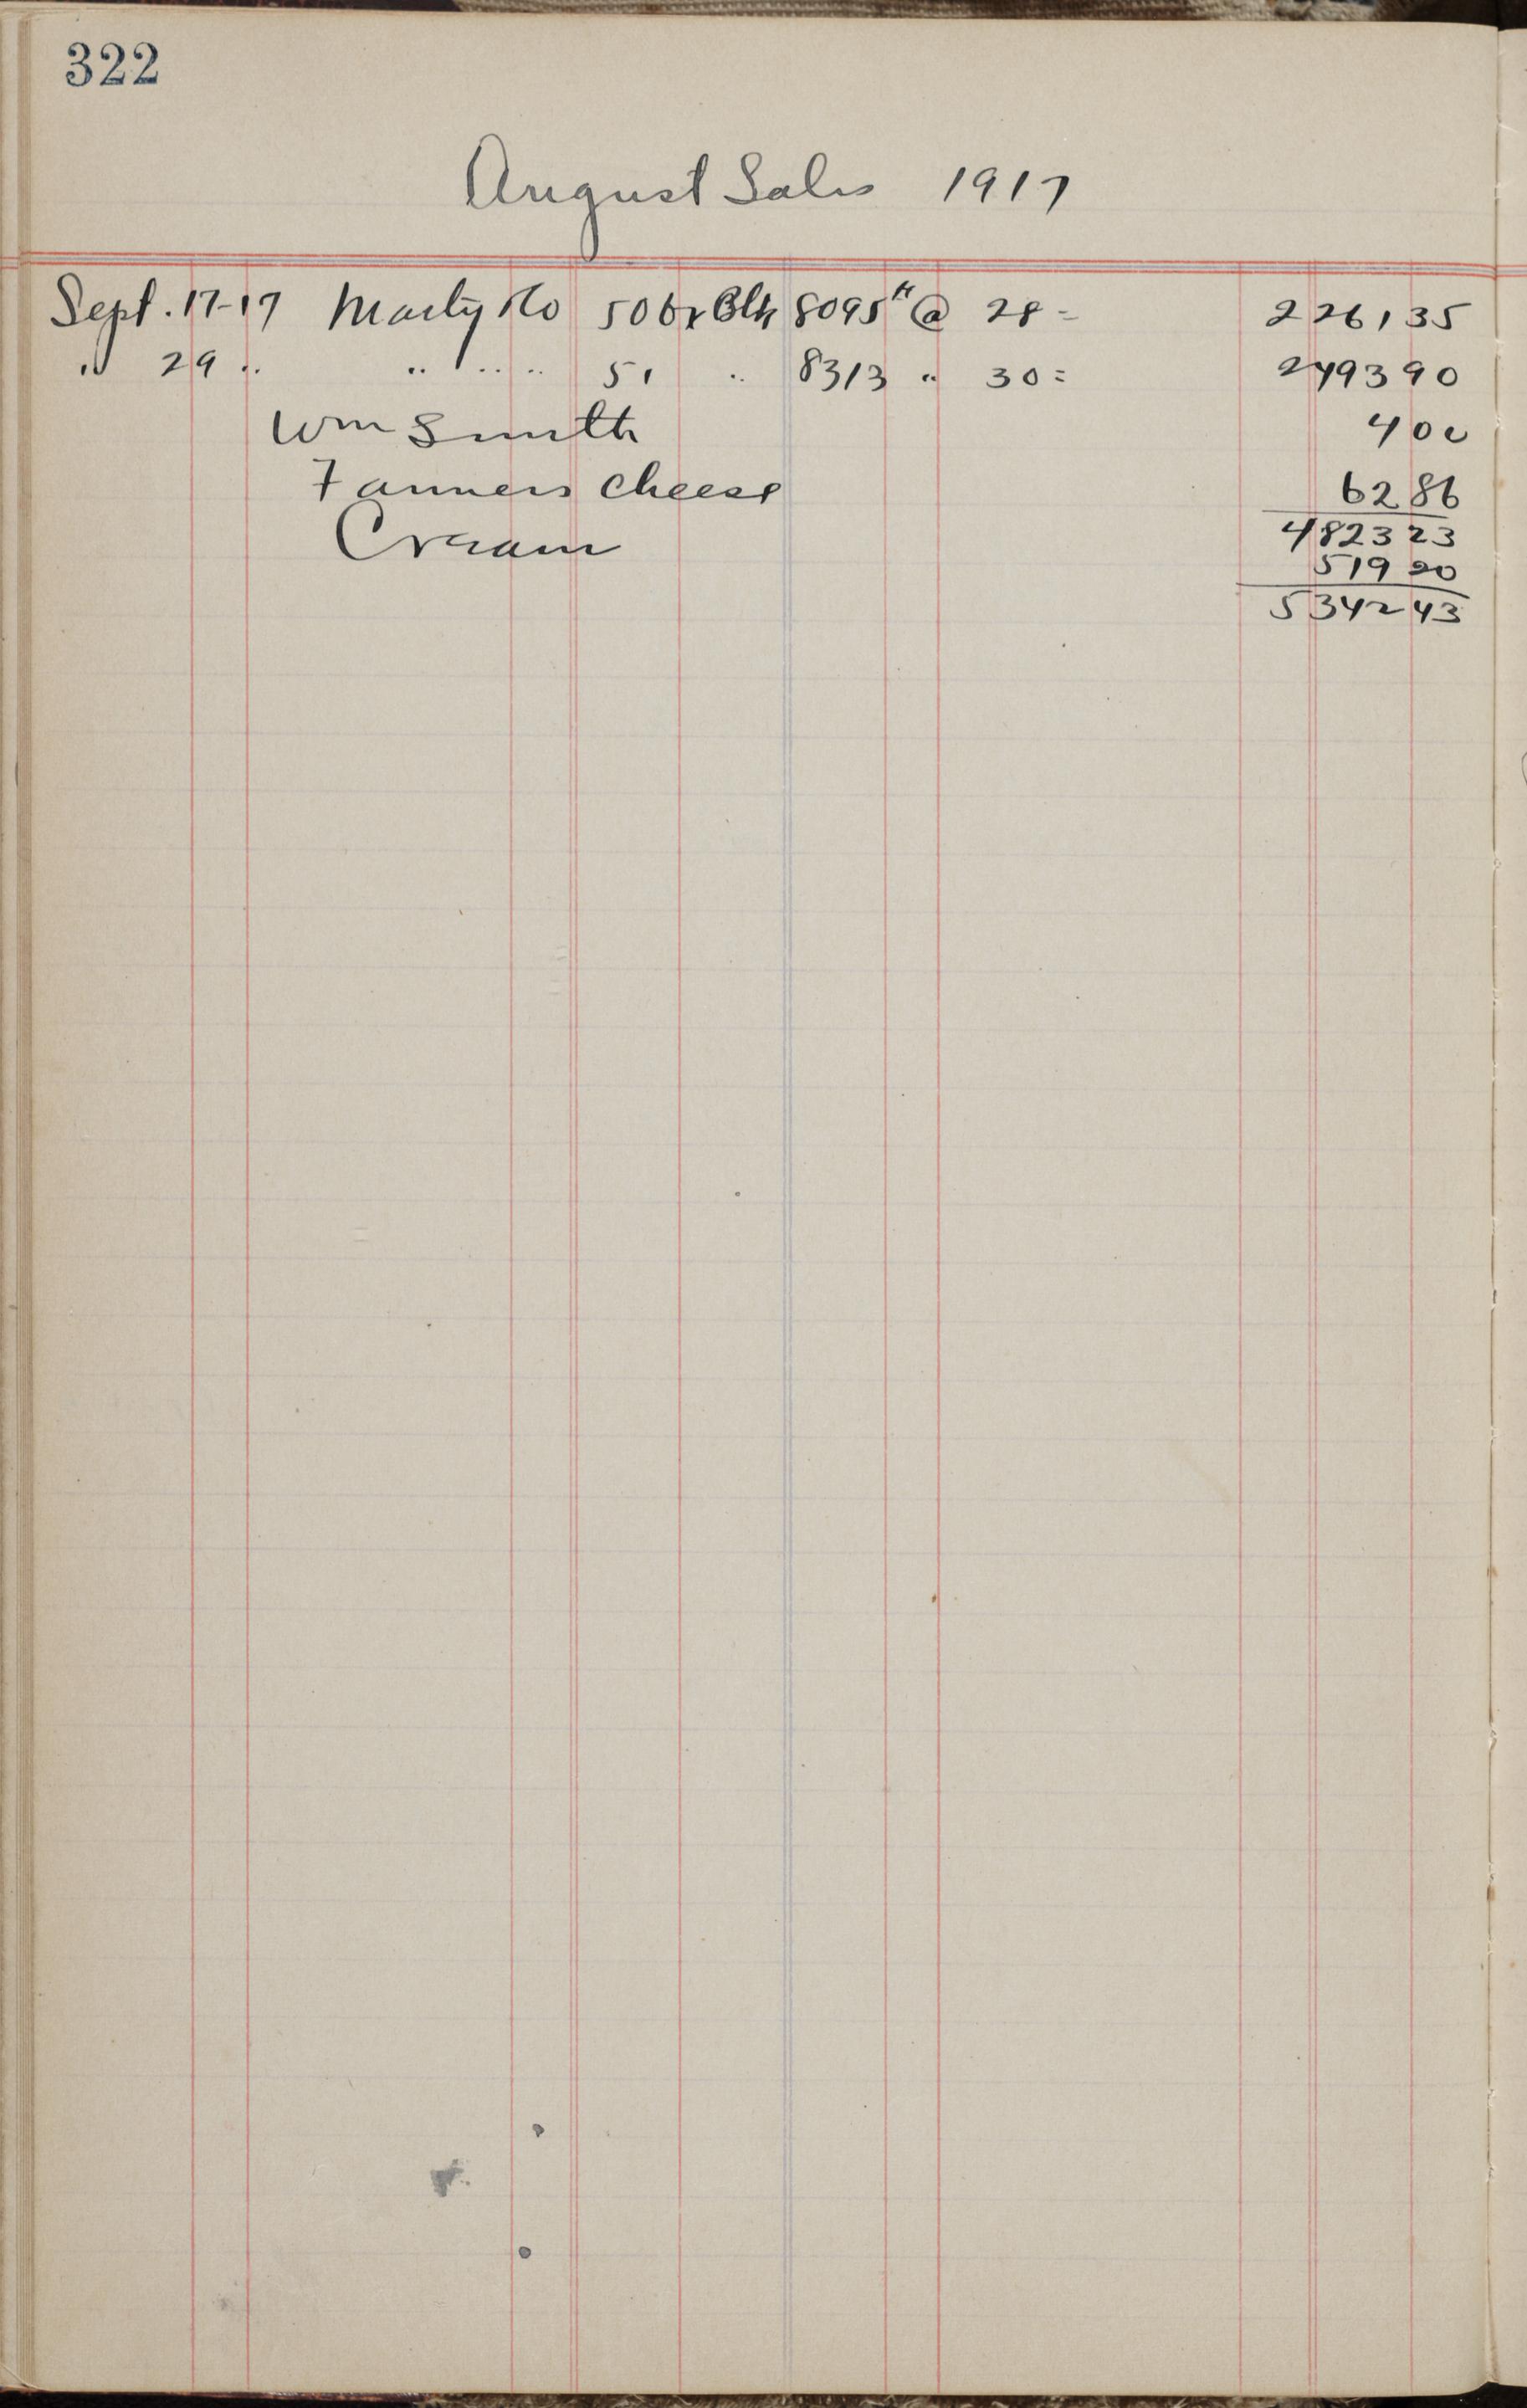 322
August Sales 1917
Sept. 17-17 Marty Co 50 bx Blk 8095 # @ 28 - 2261 35
" 29 " " " " 51 " 8313 " 30 = 2493 90
Wm Smith 4 00
Farmers Cheese 62 86
4823 23
Cream 519 20
5342 43